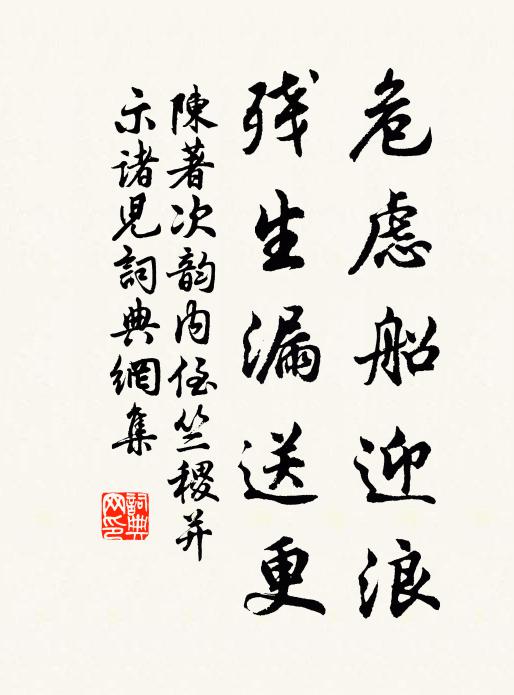 危慮船迎浪
残生漏送更
陳著次韵内侄竺稷并
示諸児詞典網集
詞典
网印